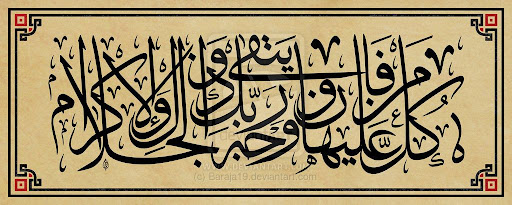 كل من عليها فان ويبقى وجه ربك ذو الجلال والاكرام
(c) Baraja19.deviantart.com